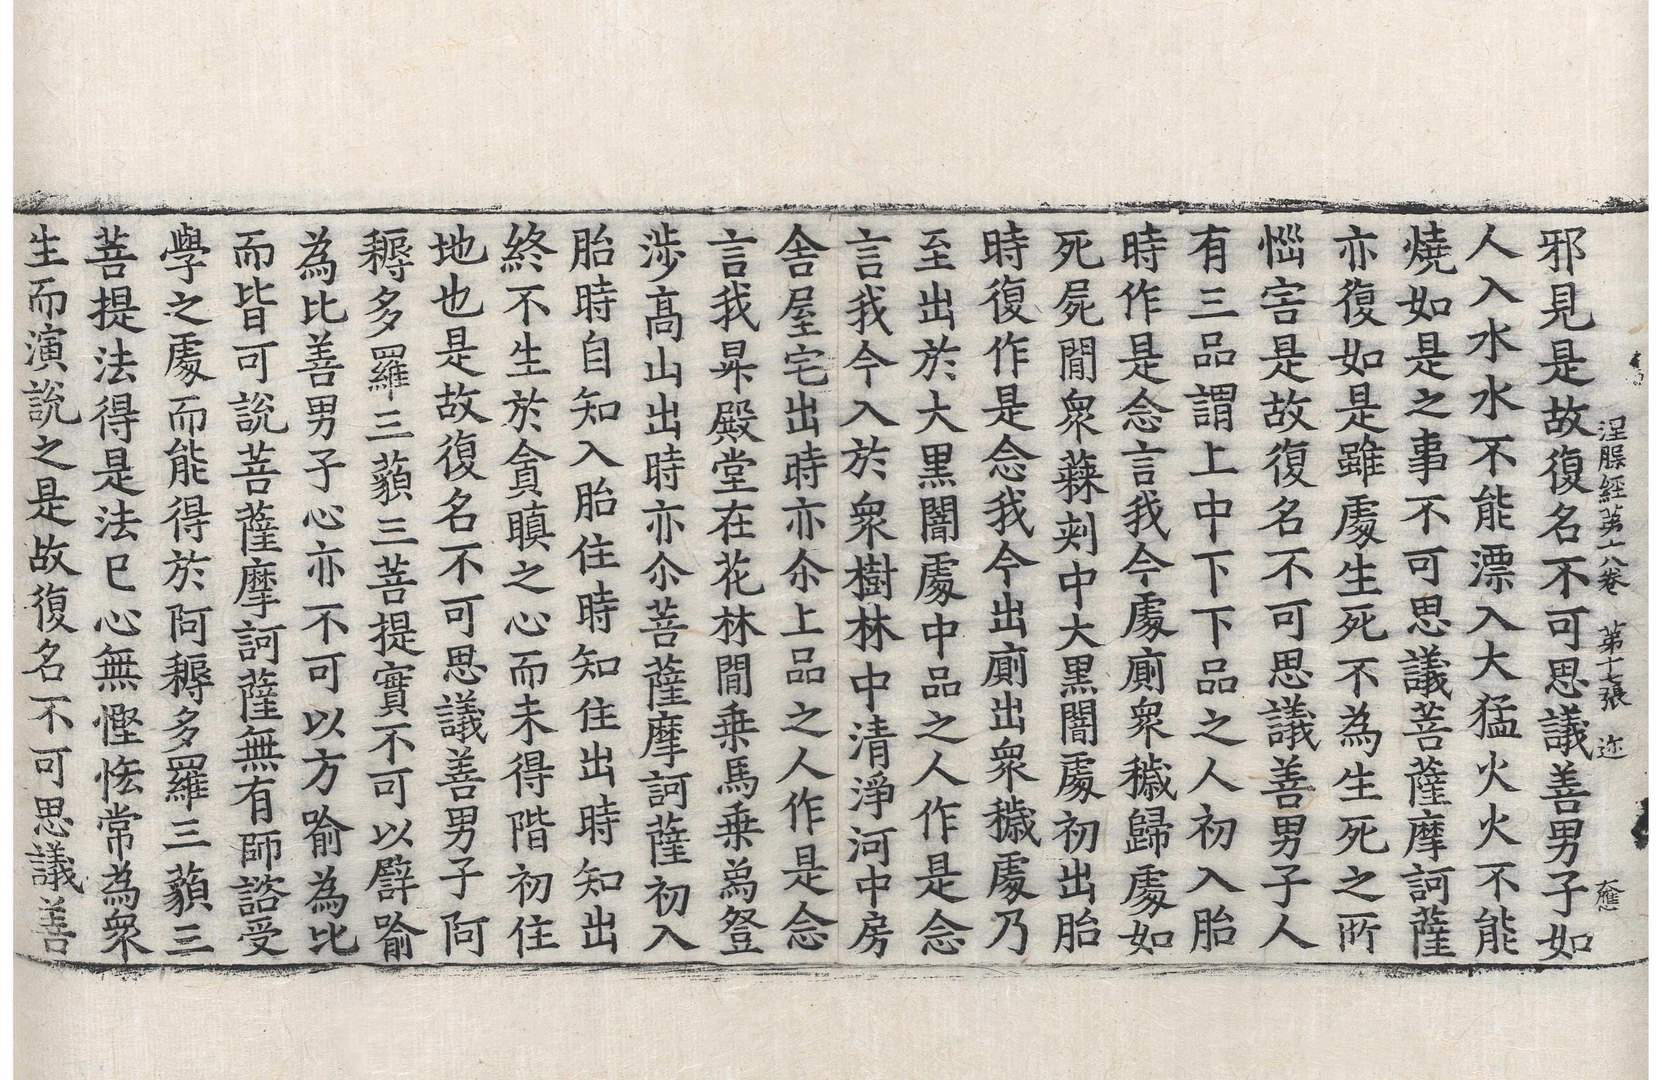 涅槃經第十八卷 第十七張 迩 大應
邪見是故復名不可思議善男子如
人入水水不能漂入大猛火火不能
燒如是之事不可思議菩薩摩訶薩
亦復如是雖處生死不為生死之所
惱害是故復名不可思議善男子人
有三品謂上中下下品之人初入胎
時作是念言我今處廁衆穢歸處如
死死屍間衆蕀刾中大黒闇處初出胎
時復作是念我今出廁出衆穢處乃
至出於大黒闇處中品之人作是念
言我今入於衆樹林中清淨河中房
舍屋宅出時亦尒上品之人作是念
言我昇殿堂在花林間乗馬乗爲登
渉髙山出時亦尒菩薩摩訶薩初入
胎時自知入胎住時知住出時知出
終不生於貪瞋之心而未得階初住
地也是故復名不可思議善男子阿
耨多羅三藐三菩提實不可以譬喻
為比善男子心亦不可以方喻為比
而皆可說菩薩摩訶薩無有師諮受
學之處而能得於阿耨多羅三藐三
菩提法得是法已心無慳悋常為衆
生而演說之是故復名不可思議善